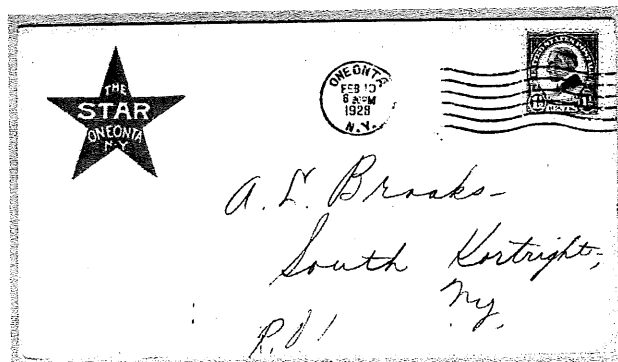 THE
STAR
ONEONTA
N.Y.
ONEONTA
FEB 10
1928
N.Y.
A. L. Brooks-
South Kortright,
Ny.
R.D 1